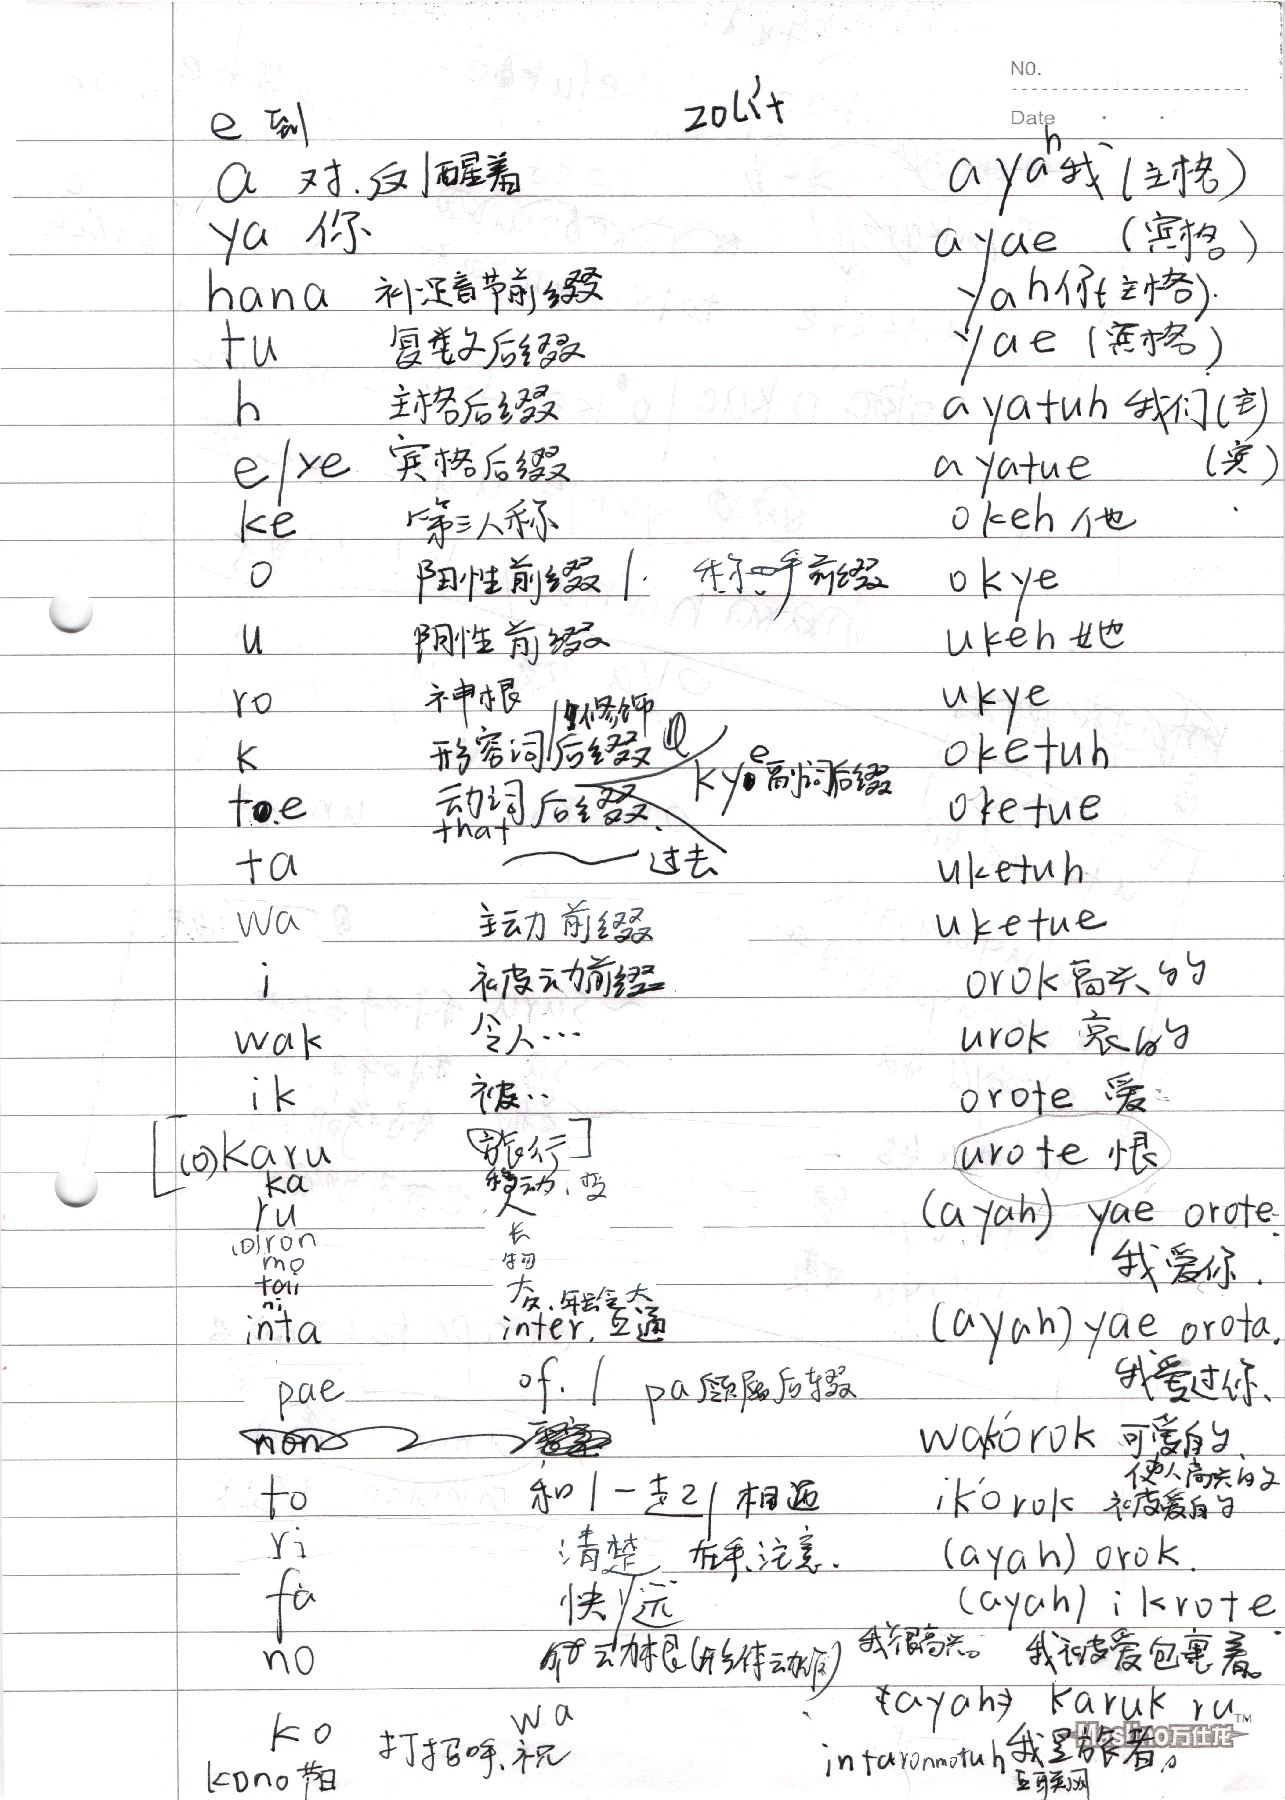 NO.
Date
e 到
a 对.反|醒着
ayah 我(主格)
ya 你
ayae (宾格)
hana 补足音节前缀
yah 你(主格).
tu 复数后缀
yae (宾格)
h 主格后缀
ayatuh 我们(主)
e/ye 宾格后缀
ayatue (宾)
ke 第三人称
okeh 他
o 阳性前缀|. 称呼前缀
okye
u 阴性前缀
ukeh 她
ro 神根
ukye
k 形容词|修饰后缀
oketuh
kye 副词后缀
te 动词后缀
that
oketue
ta 过去
uketuh
wa 主动前缀
uketue
i 被动前缀
orok 高兴的
wak 令人…
urok 哀的
ik 被..
orote 爱
[(o)karu 旅行]
urote 恨
ka 移动、变
ru 人
(ayah) yae orote.
(o)ron 长
mo 物
我爱你.
tai 大.年龄大
ni
inta inter.互通
(ayah) yae orota.
pae of. | pa 领属后缀
我爱过你、
non
wakórok 可爱的
使人高兴的
to 和|一起|相遇
ikórok 被爱的
ri 清楚 在乎、注意.
(ayah) orok.
fa 快/远
(ayah) ikrote
no 动根(形体动作)
我很高兴。 我被爱包裹着。
(ayah) karuk ru
ko 打招呼、祝
wa
intaronmotuh 我是旅者。
kono 节日
互联网
Mosliao万仕龙™